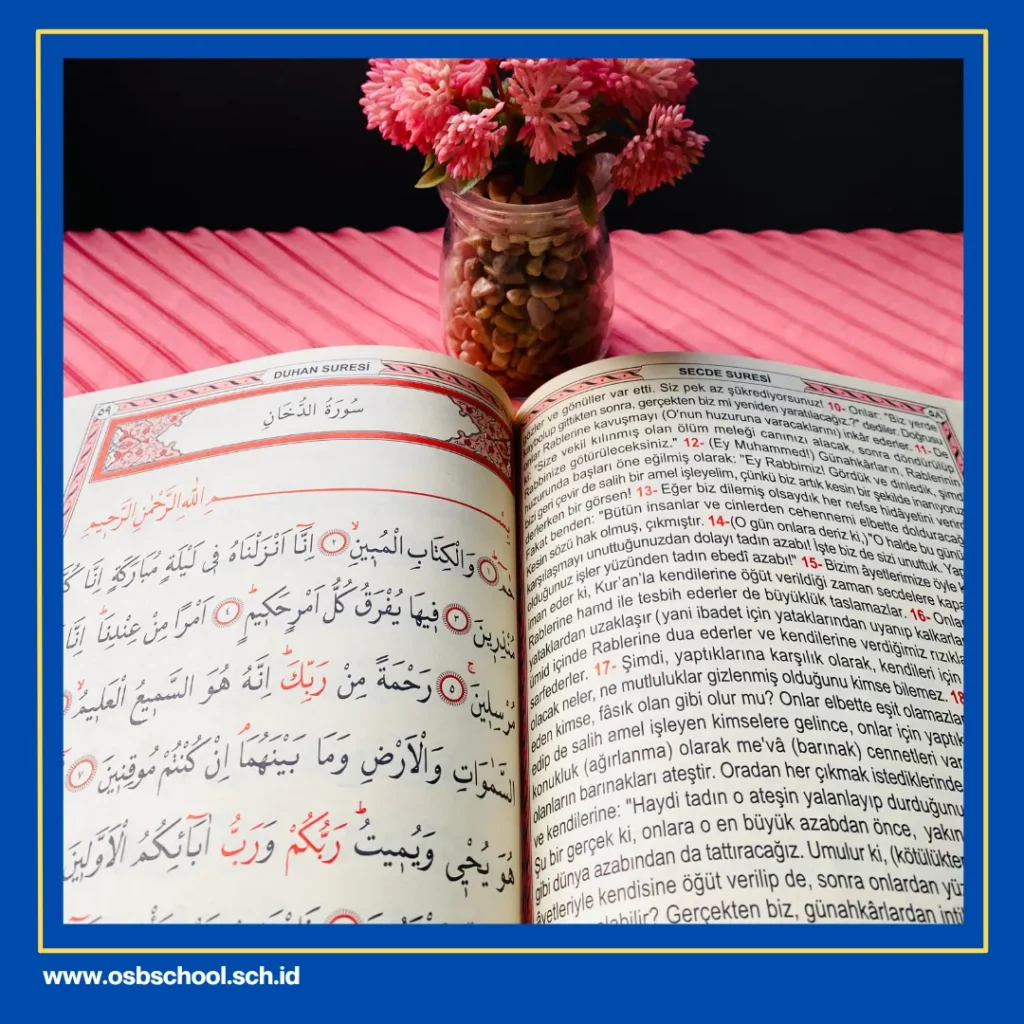 DUHAN SURESİ
٥٩
سُورَةُ الدُّخَانِ
بِسْــــمِ اللّٰهِ الرَّحْمٰنِ الرَّحِيمِ
حٰمٓ ۚ ﴿١﴾ وَالْكِتَابِ الْمُبِينِ ۙ ﴿٢﴾ اِنَّٓا اَنْزَلْنَاهُ فِى لَيْلَةٍ مُبَارَكَةٍ اِنَّا
مُنْذِرِينَ ﴿٣﴾ فِيهَا يُفْرَقُ كُلُّ اَمْرٍ حَكِيمٍ ۙ ﴿٤﴾ اَمْرًا مِنْ عِنْدِنَا ۜ اِنَّا
مُرْسِلِينَ ۚ ﴿٥﴾ رَحْمَةً مِنْ رَبِّكَ ۜ اِنَّهُ هُوَ السَّمِيعُ الْعَلِيمُ ۙ
السَّمٰوَاتِ وَالْاَرْضِ وَمَا بَيْنَهُمَا ۢ اِنْ كُنْتُمْ مُوقِنِينَ ﴿٧﴾
هُوَ يُحْيِ وَيُمِيتُ ۜ رَبُّكُمْ وَرَبُّ اٰبَٓائِكُمُ الْاَوَّلِينَ
SECDE SURESİ
٥٨
gözler ve gönüller var etti. Siz pek az şükrediyorsunuz! 10- Onlar: "Biz yerde
kaybolup gittikten sonra, gerçekten biz mi yeniden yaratılacağız?" dediler. Doğrusu
onlar Rablerine kavuşmayı (O'nun huzuruna varacaklarını) inkâr ederler. 11- De
ki: "Size vekil kılınmış olan ölüm meleği canınızı alacak, sonra döndürülüp
Rabbinize götürüleceksiniz." 12- (Ey Muhammed!) Günahkârların, Rablerinin
huzurunda başları öne eğilmiş olarak: "Ey Rabbimiz! Gördük ve dinledik, şimdi
bizi geri çevir de salih bir amel işleyelim, çünkü biz artık kesin bir şekilde inanıyoruz
derlerken bir görsen! 13- Eğer biz dilemiş olsaydık her nefse hidayetini verirdi
Fakat benden: "Bütün insanlar ve cinlerden cehennemi elbette dolduracağ
Kesin sözü hak olmuş, çıkmıştır. 14-(O gün onlara deriz ki,)"O halde bu günü
karşılaşmayı unuttuğunuzdan dolayı tadın azabı! İşte biz de sizi unuttuk. Yap
olduğunuz işler yüzünden tadın ebedî azabı!" 15- Bizim âyetlerimize öyle k
iman eder ki, Kur'an'la kendilerine öğüt verildiği zaman secdelere kapa
Rablerine hamd ile tesbih ederler de büyüklük taslamazlar. 16- Onlar
yataklardan uzaklaşır (yani ibadet için yataklarından uyanıp kalkarlar
ümid içinde Rablerine dua ederler ve kendilerine verdiğimiz rızıkla
sarfederler. 17- Şimdi, yaptıklarına karşılık olarak, kendileri için
olacak neler, ne mutluluklar gizlenmiş olduğunu kimse bilemez. 18
eden kimse, fâsık olan gibi olur mu? Onlar elbette eşit olamazlar
edip de salih amel işleyen kimselere gelince, onlar için yaptık
konukluk (ağırlanma) olarak me'vâ (barınak) cennetleri var
olanların barınakları ateştir. Oradan her çıkmak istediklerinde
ve kendilerine: "Haydi tadın o ateşin yalanlayıp durduğunu
Şu bir gerçek ki, onlara o en büyük azabdan önce, yakın
gibi dünya azabından da tattıracağız. Umulur ki, (kötülükten
âyetleriyle kendisine öğüt verilip de, sonra onlardan yüz
olabilir? Gerçekten biz, günahkârlardan inti
www.osbschool.sch.id